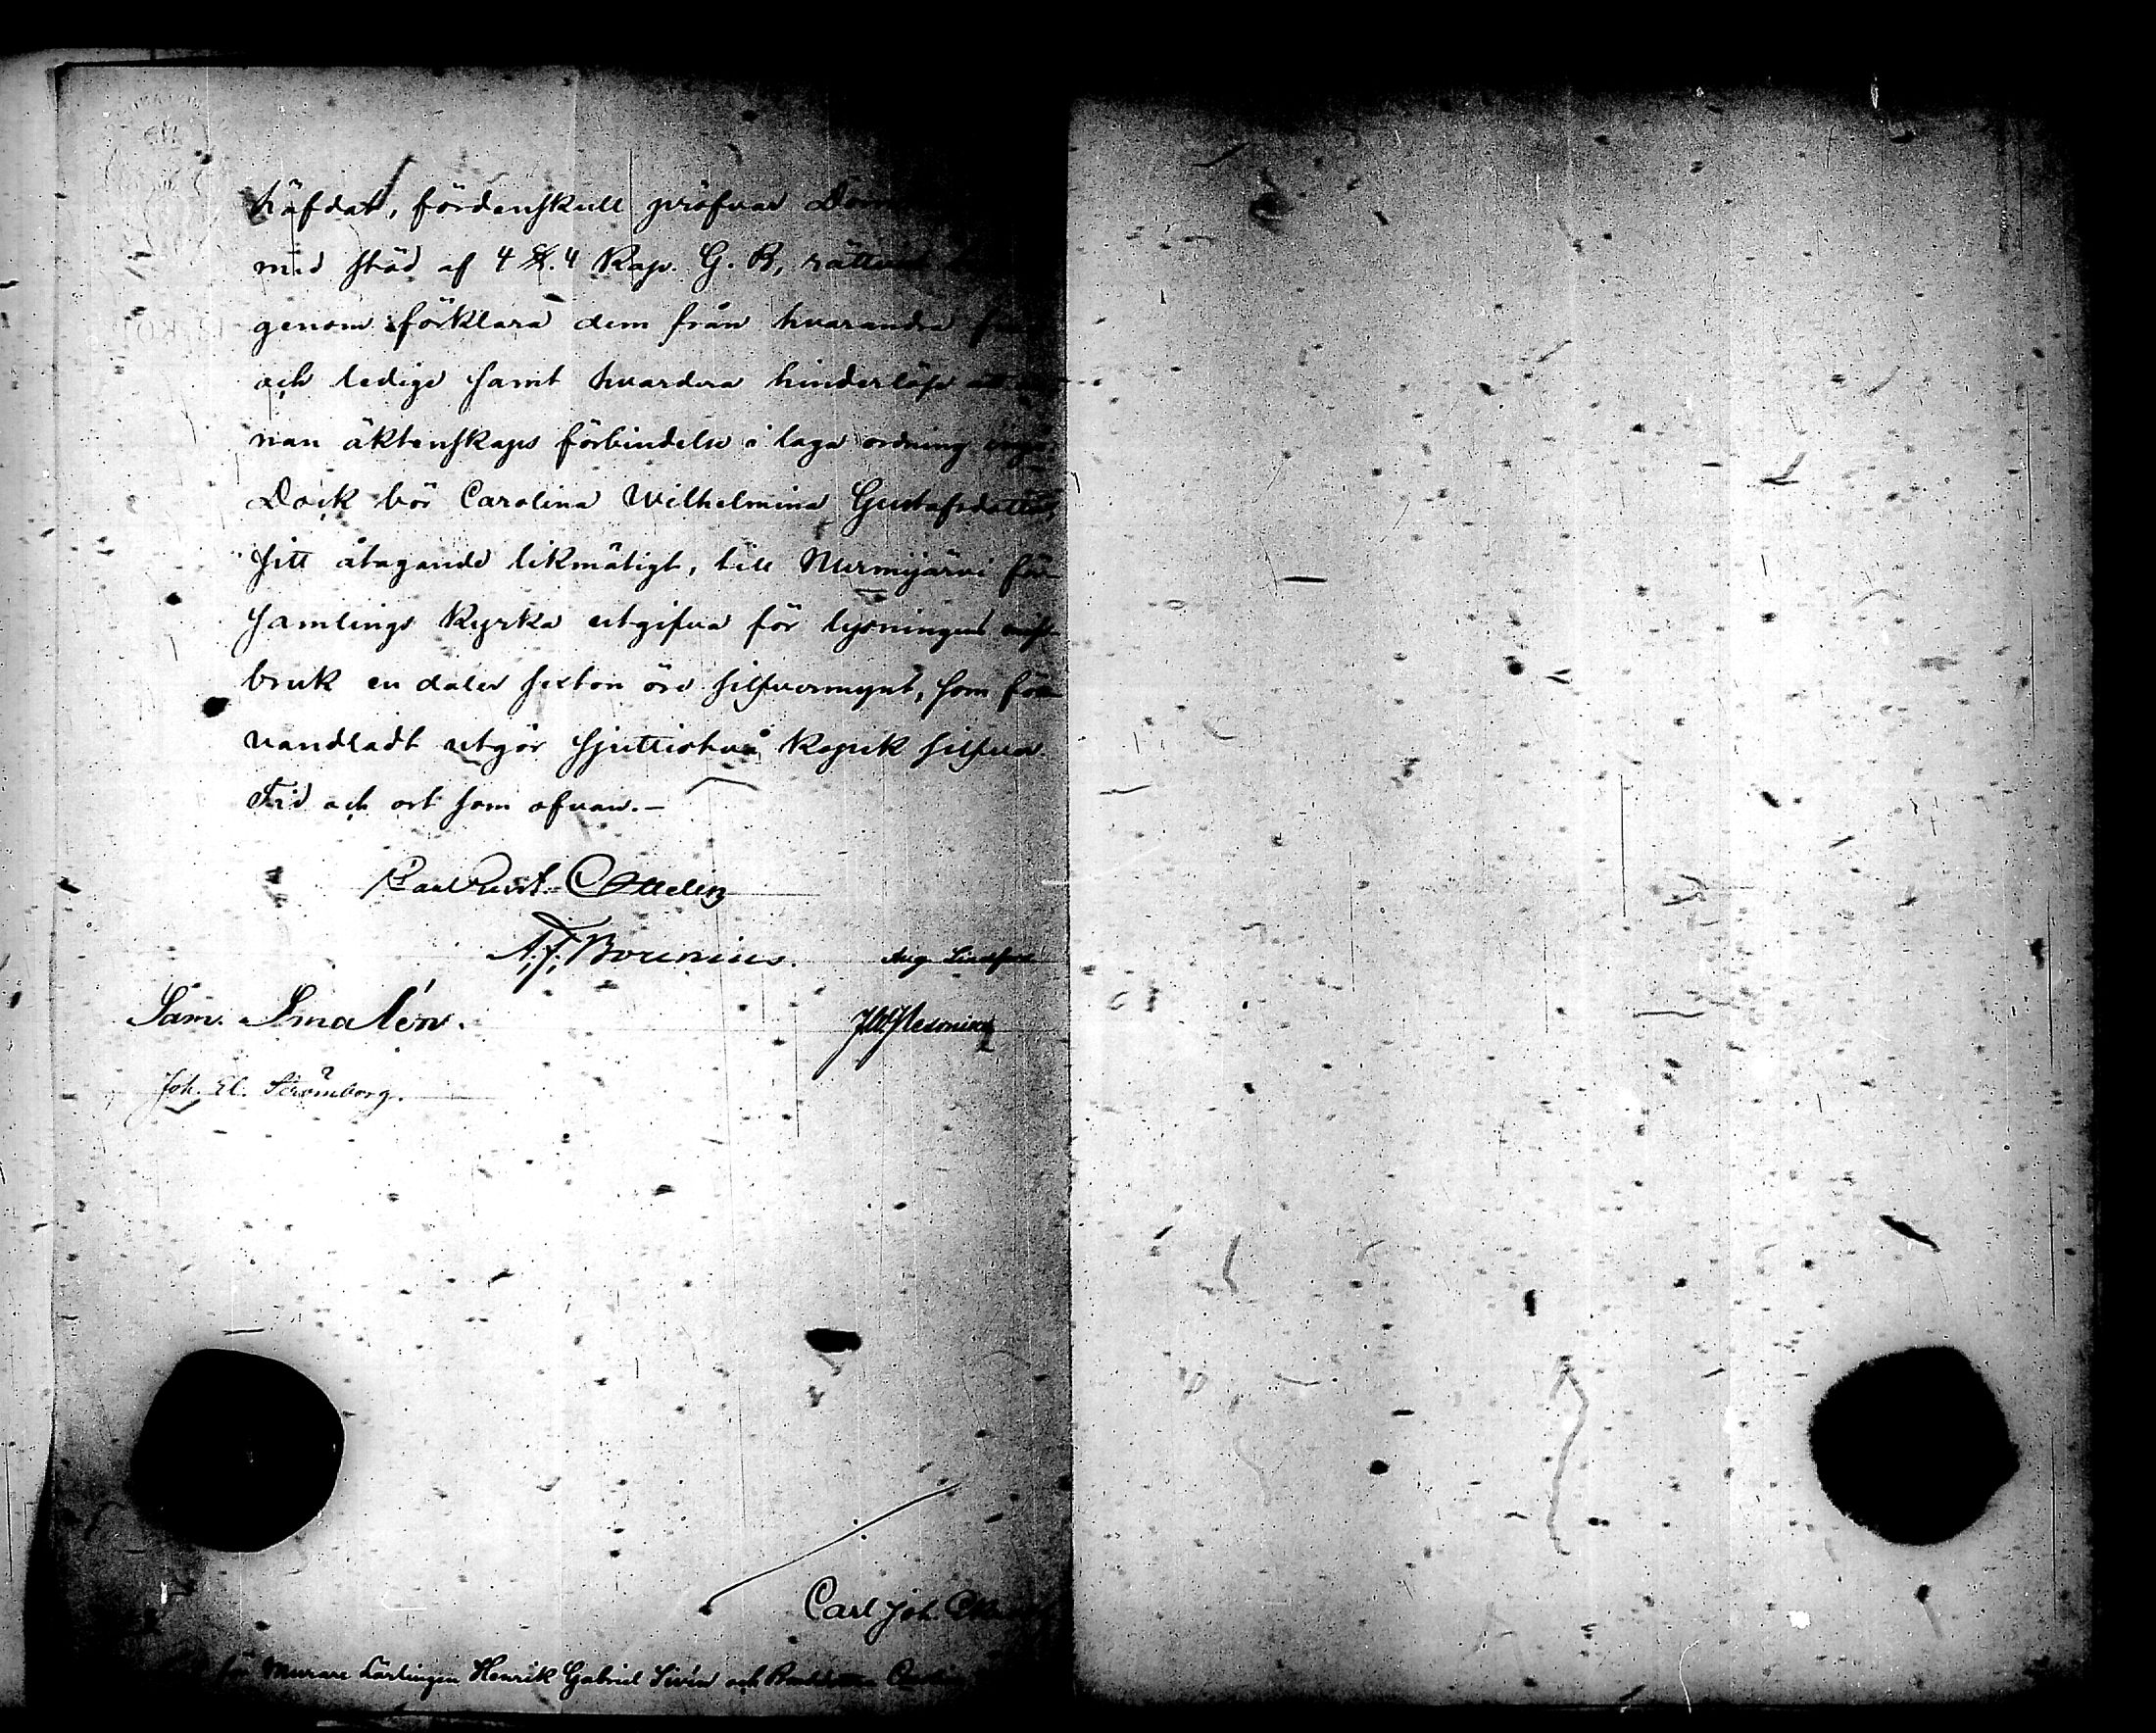 häfdat, fördenskull pröfvar Dom
med stöd af 4 §. 4 Kap. G. B, rättvist
genom förklara dem från hvarandra
och ledige samt hvardera hinderlöse att
nan äktenskaps förbindelse i laga ordning ingå.
Dock bör Carolina Wilhelmina Gustafsdotter,
sitt åtagande likmätigt, till Nurmijärvi för-
samlings Kyrka utgifva för lysningens miss-
bruk en daler sexton öre silfvermynt, som för-
vandladt utgör sjuttiotvå Kopek silfver.
Tid och ort som ofvan.—
A. F. Borenius. Aug. Lindfors
Sam. Smalén.
Joh. El. Strömborg.
Carl Joh.
för Murare Lärlingen Henrik Gabriel Sivén och